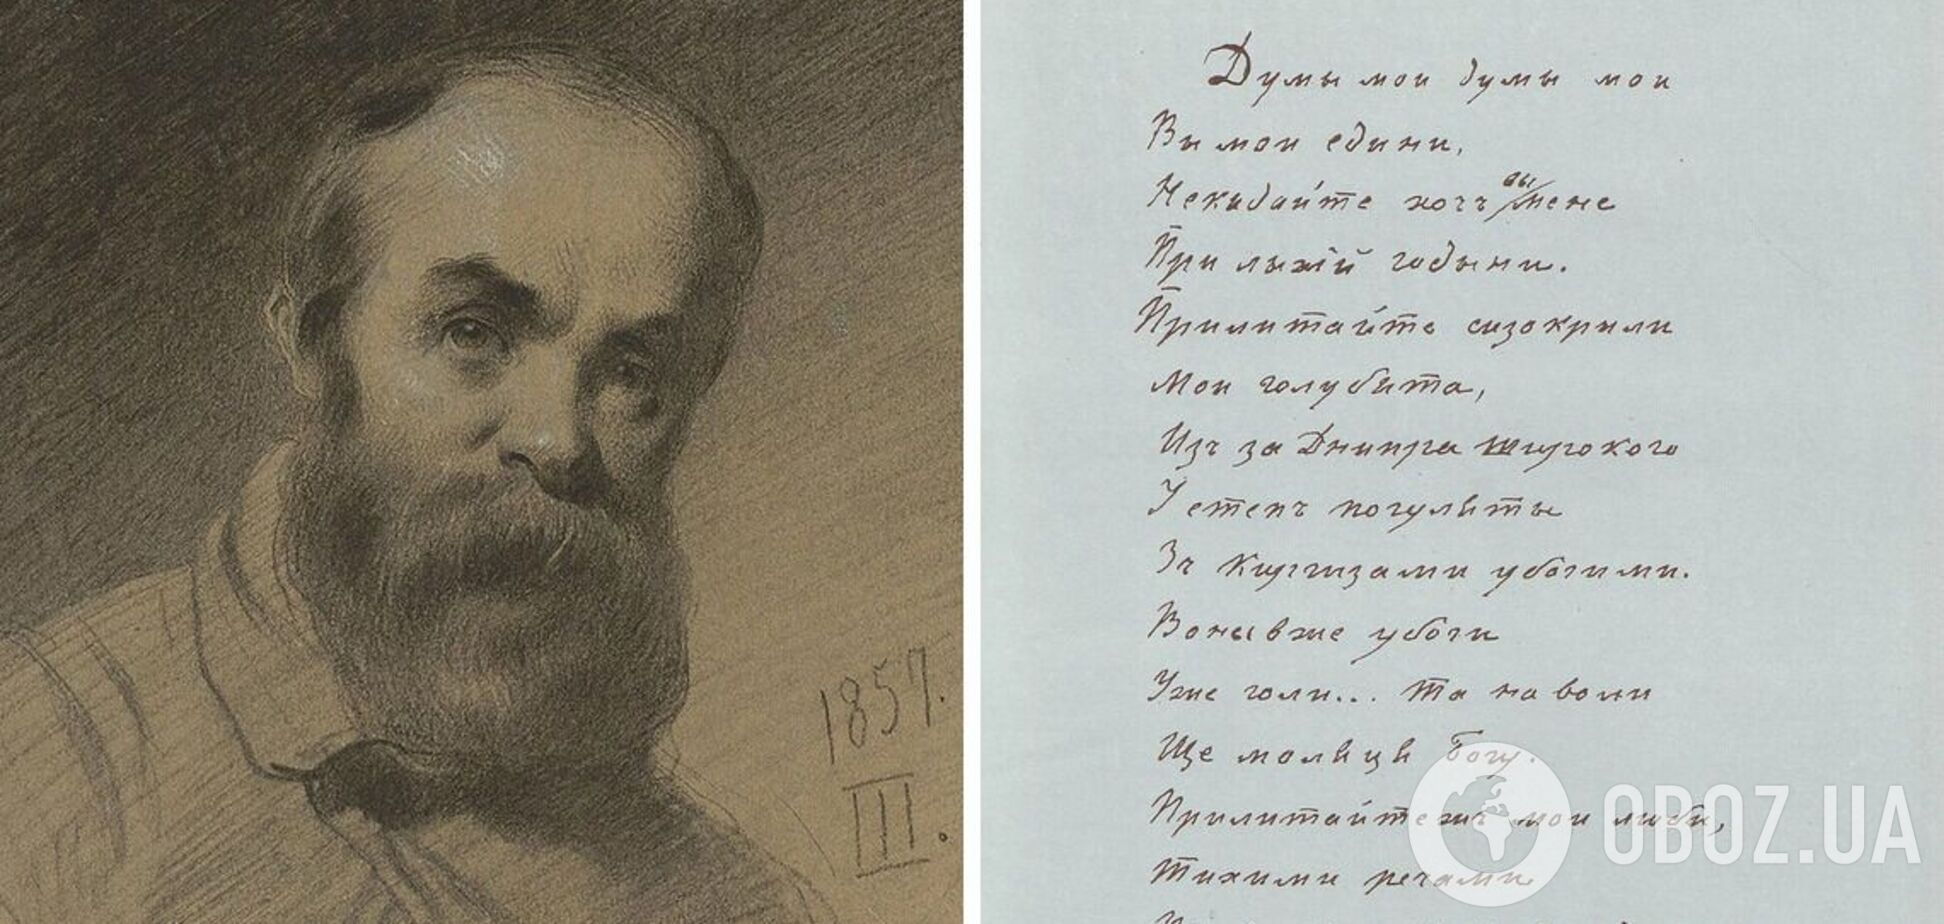 Думы мои думы мои
Вы мои едини,
Некидайте хочъ вы мене
При лыхій годыни.
Прилитайте сизокрили
Мои голубята,
Изъ за Днипра широкого
У степъ погуляты
Зъ Киргизами убогими.
Воны вже убоги
Уже голи... Та на воли
Ще моляця Богу.
Прилитайтежъ мои люби,
Тихими речами
1857.
III.
OBOZ.UA